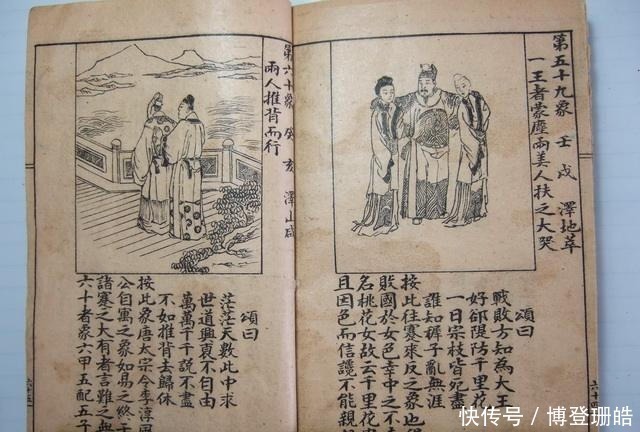 第五十九象 壬戌 澤地萃
一王者蒙塵兩美人扶之大哭
頌曰
戰敗方知為大王
好卻隄防千里花
一日宗枝皆死盡
誰知褲子亂無涯
按此往蹇來反之象也
敗國於女色幸中之不
名桃花女故云千里花
且因色而信讒不能親
六十四
第六十象 癸亥 澤山咸
兩人推背而行
頌曰
茫茫天數此中求
世道興衰不自由
萬萬千千說不盡
不如推背去歸休
按此象唐太宗令李淳風
公自寓之象如易之終于
諸蹇之大有者言雖之無
六十者象六甲五配五子
六十五
快传号 / 博登珊皓